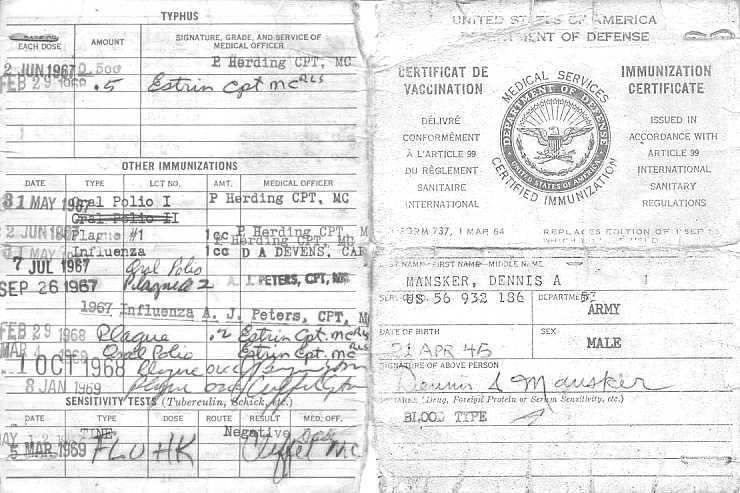 TYPHUS
EACH DOSE
AMOUNT
SIGNATURE, GRADE, AND SERVICE OF MEDICAL OFFICER
2 JUN 1967 0.500 P Herding CPT, MC
FEB 29 1968 .5 Estrin Cpt MC
OTHER IMMUNIZATIONS
DATE TYPE LOT NO. AMT. MEDICAL OFFICER
31 MAY 1967 Oral Polio I P Herding CPT, MC
Oral Polio II
2 JUN 1967 Plague #1 1cc P Herding CPT, MC
31 MAY Influenza 1cc P Herding CPT, MC
D A DEVENS, CAP
7 JUL 1967 Oral Polio
SEP 26 1967 Plague 2 A. J. PETERS, CPT, MC
1967 Influenza A. J. Peters, CPT, M
FEB 29 1968 Plague .2 Estrin Cpt. MC
MAR 4 1968 Oral Polio Estrin Cpt. MC
1 OCT 1968 Plague
8 JAN 1969 Plague
SENSITIVITY TESTS (Tuberculin, Schick, etc.)
DATE TYPE DOSE ROUTE RESULT MED. OFF.
MAY 12 TINE Negative
5 MAR 1969 FLU HK MC
UNITED STATES OF AMERICA
DEPARTMENT OF DEFENSE
CERTIFICAT DE VACCINATION
DÉLIVRÉ
CONFORMÉMENT
À L'ARTICLE 99
DU RÈGLEMENT
SANITAIRE
INTERNATIONAL
MEDICAL SERVICES
DEPARTMENT OF DEFENSE
UNITED STATES OF AMERICA
CERTIFIED IMMUNIZATION
IMMUNIZATION CERTIFICATE
ISSUED IN
ACCORDANCE WITH
ARTICLE 99
INTERNATIONAL
SANITARY
REGULATIONS
FORM 737, 1 MAR 64 REPLACES EDITION OF 1 SEP
NAME FIRST NAME MIDDLE NAME
MANSKER, DENNIS A
US 56 932 186
DEPARTMENT
ARMY
DATE OF BIRTH
21 APR 45
SEX
MALE
SIGNATURE OF ABOVE PERSON
Dennis A Mansker
(Drug, Foreign Protein or Serum Sensitivity, etc.)
BLOOD TYPE